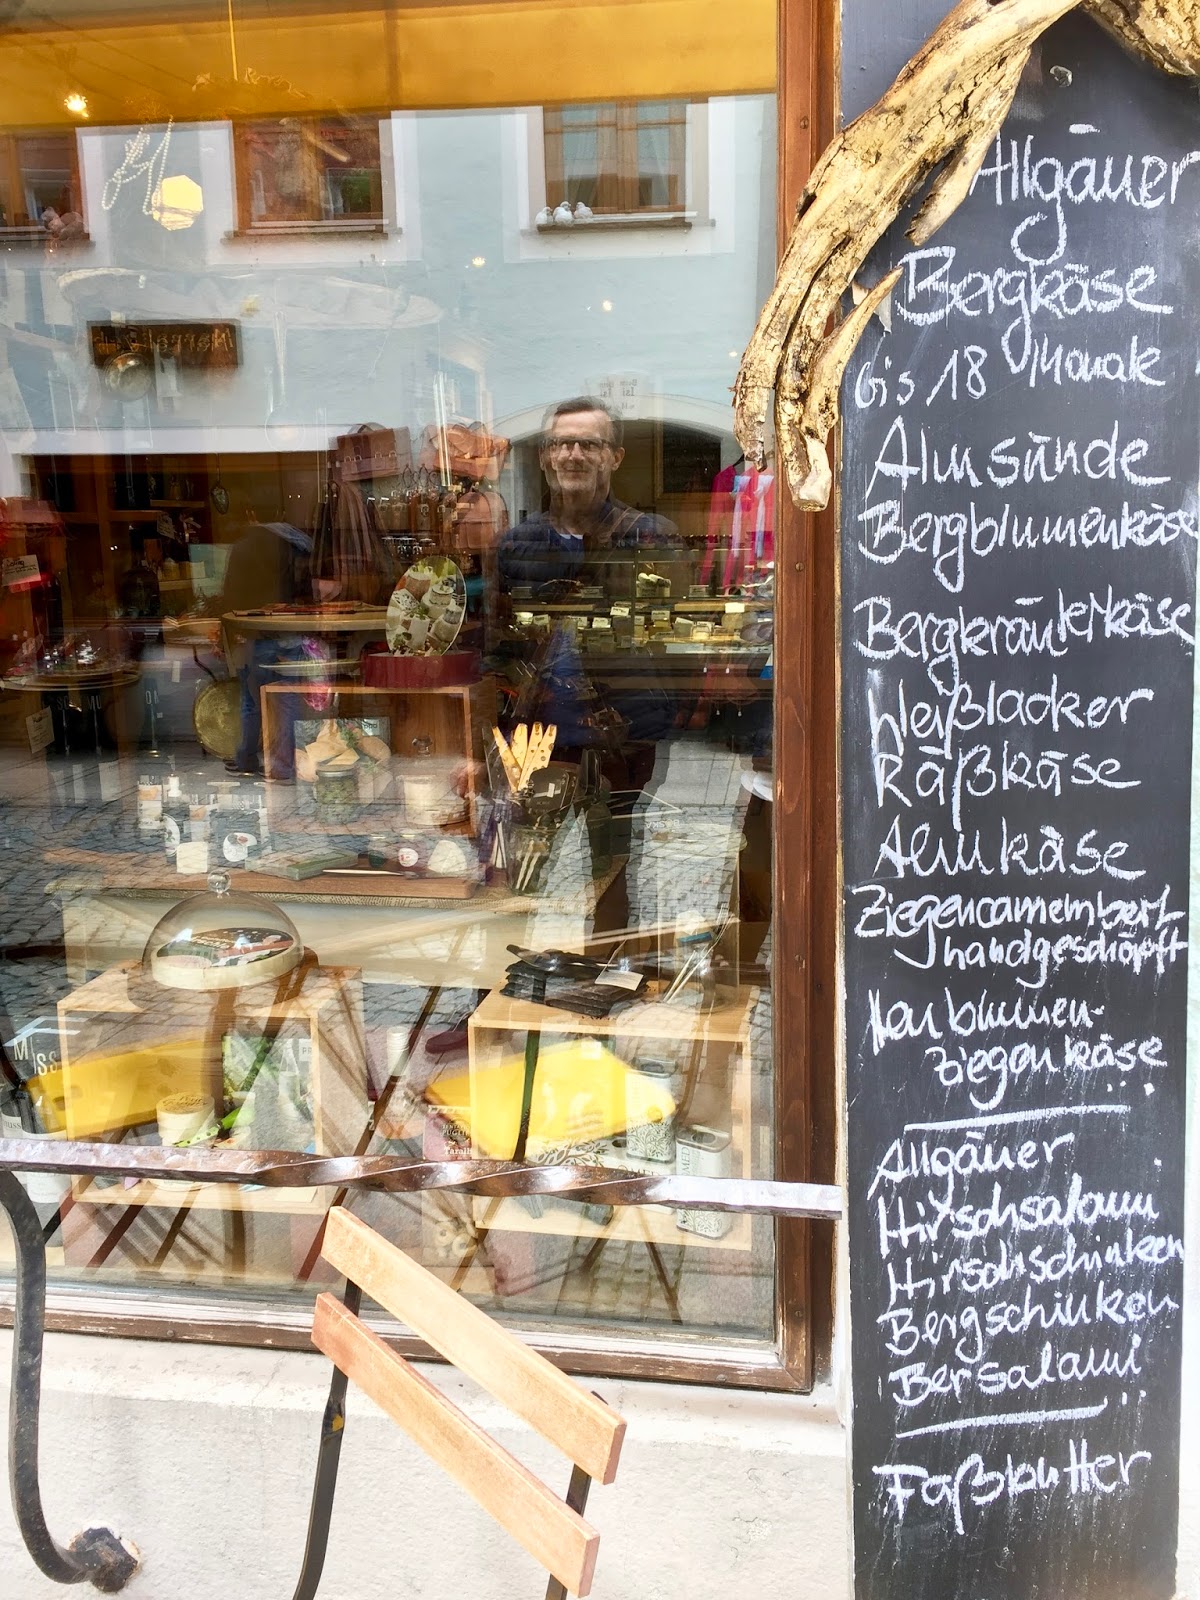 Allgäuer
Bergkäse
bis 18 Monate
Almsünde
Bergblumenkäse
Bergkräuterkäse
Weißlacker
Räßkäse
Almkäse
Ziegencamembert
handgeschöpft
Heublumen-
ziegenkäse
Allgäuer
Hirschsalami
Hirschschinken
Bergschinken
Bersalami
Faßbutter
MISS
Taralli